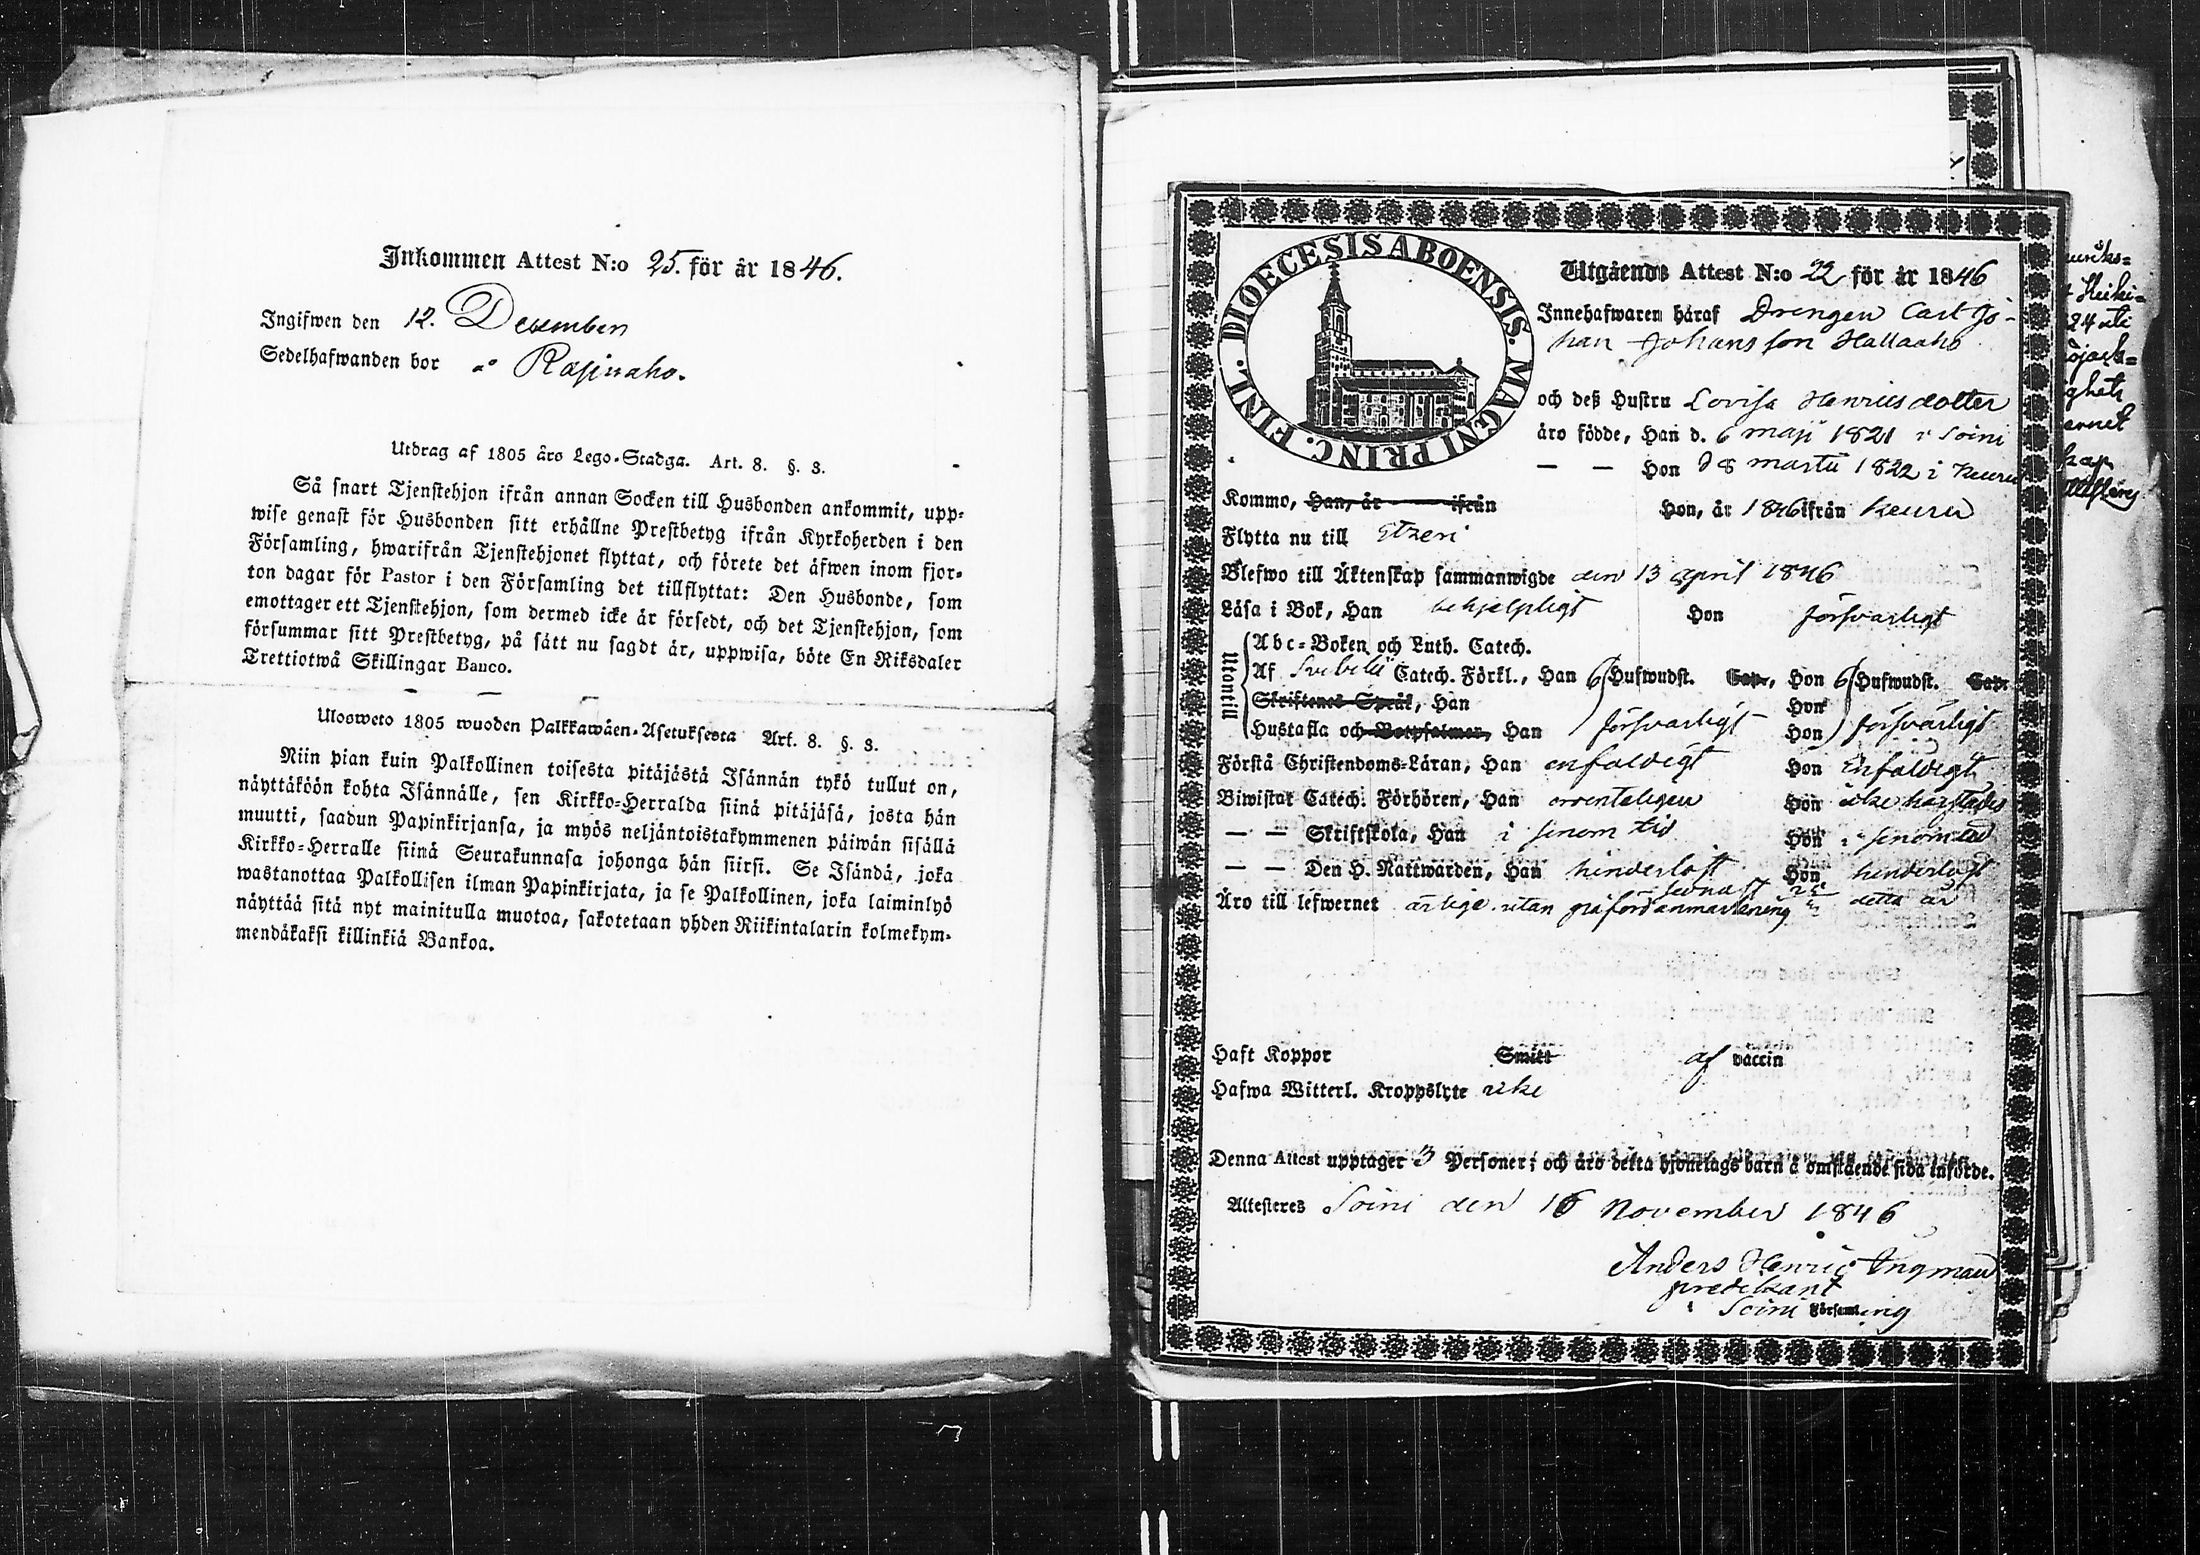 Inkommen Attest N:o 25. för år 1846.
Ingifwen den 12. Desember
Sedelhafwanden bor å Rajuaho.
Utdrag af 1805 års Lego-Stadga. Art. 8. §. 3.
Så snart Tjenstehjon ifrån annan Socken till Husbonden ankommit, upp-
wise genast för Husbonden sitt erhållne Prestbetyg ifrån Kyrkoherden i den
Församling, hwarifrån Tjenstehjonet flyttat, och förete det äfwen inom fjor-
ton dagar för Pastor i den Församling det tillflyttat: Den Husbonde, som
emottager ett Tjenstehjon, som dermed icke är försedt, och det Tjenstehjon, som
försummar sitt Prestbetyg, på sätt nu sagdt är, uppwisa, böte En Riksdaler
Trettiotwå Skillingar Banco.
Ulosweto 1805 wuoden Palkkawäen-Asetuksesta Art. 8. §. 3.
Niin pian kuin Palkollinen toisesta pitäjästä Isännän tykö tullut on,
näyttäköön kohta Isännälle, sen Kirkko-Herralda siinä pitäjäsä, josta hän
muutti, saadun Papinkirjansa, ja myös neljäntoistakymmenen päiwän sisällä
Kirkko-Herralle siinä Seurakunnasa johonga hän siirsi. Se Isändä, joka
wastanottaa Palkollisen ilman Papinkirjata, ja se Palkollinen, joka laiminlyö
näyttää sitä nyt mainitulla muotoa, sakotetaan yhden Riikintalarin kolmekym-
mendäkaksi killinkiä Bankoa.
DIOECESIS ABOENSIS. MAGNI PRINC. FINL.
Utgående Attest N:o 22 för år 1846
Innehafwaren häraf Drengen Carl Jo-
han Johansson Hallaaho
och deß Hustru Lovisa Henricsdotter
äro födde, Han d. 6 maji 1821 i Soini
— — Hon d 8 martii 1822 i Keuru
Kommo, Han, år ifrån Hon, år 1846 ifrån Keuru
Flytta nu till Etzeri
Blefwo till Äktenskap sammanwigde den 13 april 1846
Läsa i Bok, Han behjelpligt Hon försvarligt
Utontill
Abc-Boken och Luth. Catech.
Af Svebelii Catech. Förkl., Han 6 Hufwudst. Cap., Hon 6 Hufwudst. Cap.
Skriftenes Språk, Han Hon
Hustafla och Botpsalmer, Han försvarligt Hon försvarligt
Förstå Christendoms-Läran, Han enfaldigt Hon Enfaldigt
Biwistat Catech. Förhören, Han ordenteligen Hon icke härstädes
— — Skriftskola, Han i sinom tid Hon i sinom tid
— — Den H. Nattwarden, Han hinderlöst Hon hinderlöst
sednast detta år
Äro till lefwernet ärlige utan påförd anmärkning
Haft Koppor Smitt af vaccin
Hafwa Witterl. Kroppslyte icke
Denna Attest upptager 3 Personer; och äro detta hjonelags barn å omstående sida införde.
Attesteres Soini den 16 November 1846
Anders Henric Ingman
predikant
i Soini Församling